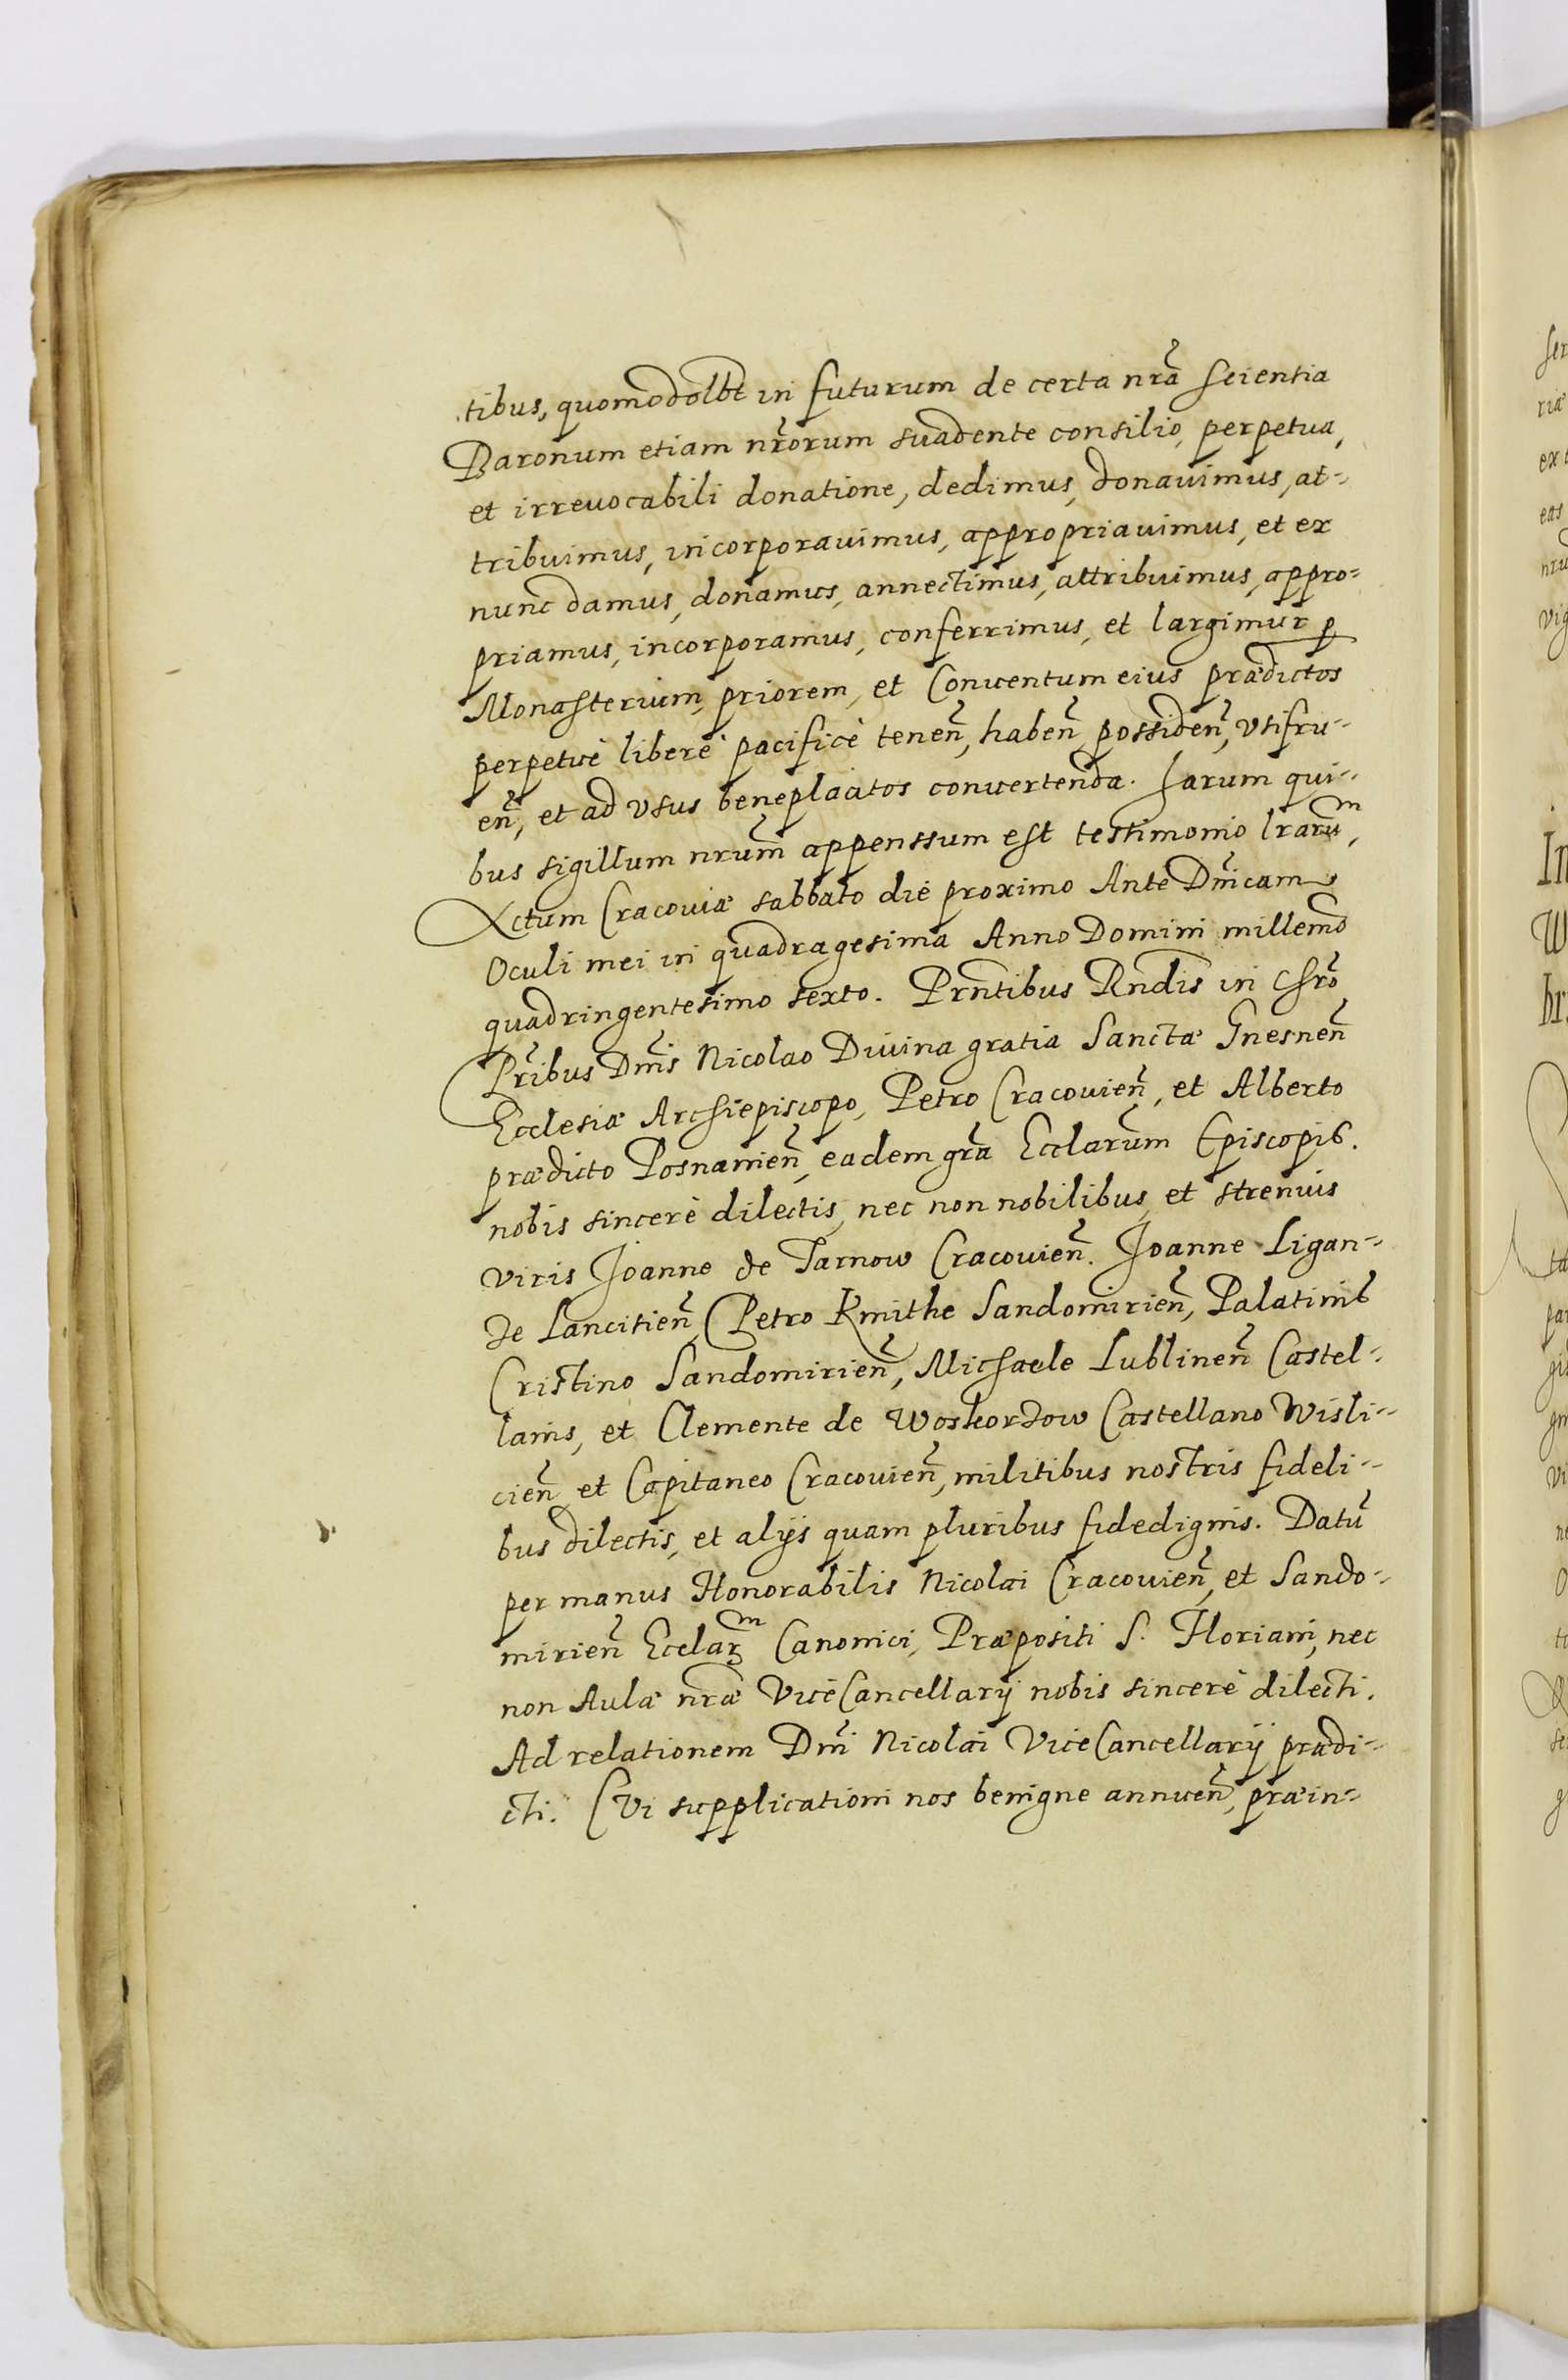 tibus, quomodolbt in futurum de certa nr̃a scientia
Baronum etiam nr̃orum suadente consilio, perpetua,
et irreuocabili donatione, dedimus, donauimus, at-
tribuimus, incorporauimus, appropriauimus, et ex
nunc damus, donamus, annectimus, attribuimus, appro-
priamus, incorporamus, conferrimus, et largimur p
Monasterium, priorem, et Conuentum eius prædictos
perpetuè liberè pacificè teneñ, habeñ possideñ, vsifru-
eñ, et ad vsus beneplacitos conuertenda. Harum qui-
bus sigillum nrum̃ appenssum est testimonio lrarum,
Actum Cracouiæ sabbato die proximo Ante Dn̄icam
Oculi mei in quadragesima Anno Domini millemo
quadringentesimo sexto. Prn̄tibus Rndis in Chro
Pr̃ibus Dm̃s Nicolao Diuina gratia Sanctæ Gnesneñ
Ecclesiæ Archiepiscopo, Petro Cracouieñ, et Alberto
prædicto Posnanieñ, eadem gr̃a Ecclarum̃ Episcopis.
nobis sincerè dilectis, nec non nobilibus, et strenuis
viris Joanne de Tarnow Cracouieñ. Joanne Ligan-
de Lancitieñ, Petro Kmithe Sandomirieñ, Palatinis
Cristino Sandomirieñ, Michaele Lublineñ Castel-
lanis, et Clemente de Woskordow Castellano Wisli-
cieñ et Capitaneo Cracouieñ, militibus nostris fideli-
bus dilectis, et alijs quam pluribus fidedignis. Datũ
per manus Honorabilis Nicolai Cracouieñ, et Sando-
mirieñ Ecclarm Canonici, Præpositi S. Floriani, nec
non Aulæ nr̃æ ViceCancellarij nobis sincerè dilecti.
Ad relationem Dm̃i Nicolai ViceCancellarij prædi-
cti. Cui supplicationi nos benigne annueñ, præin-